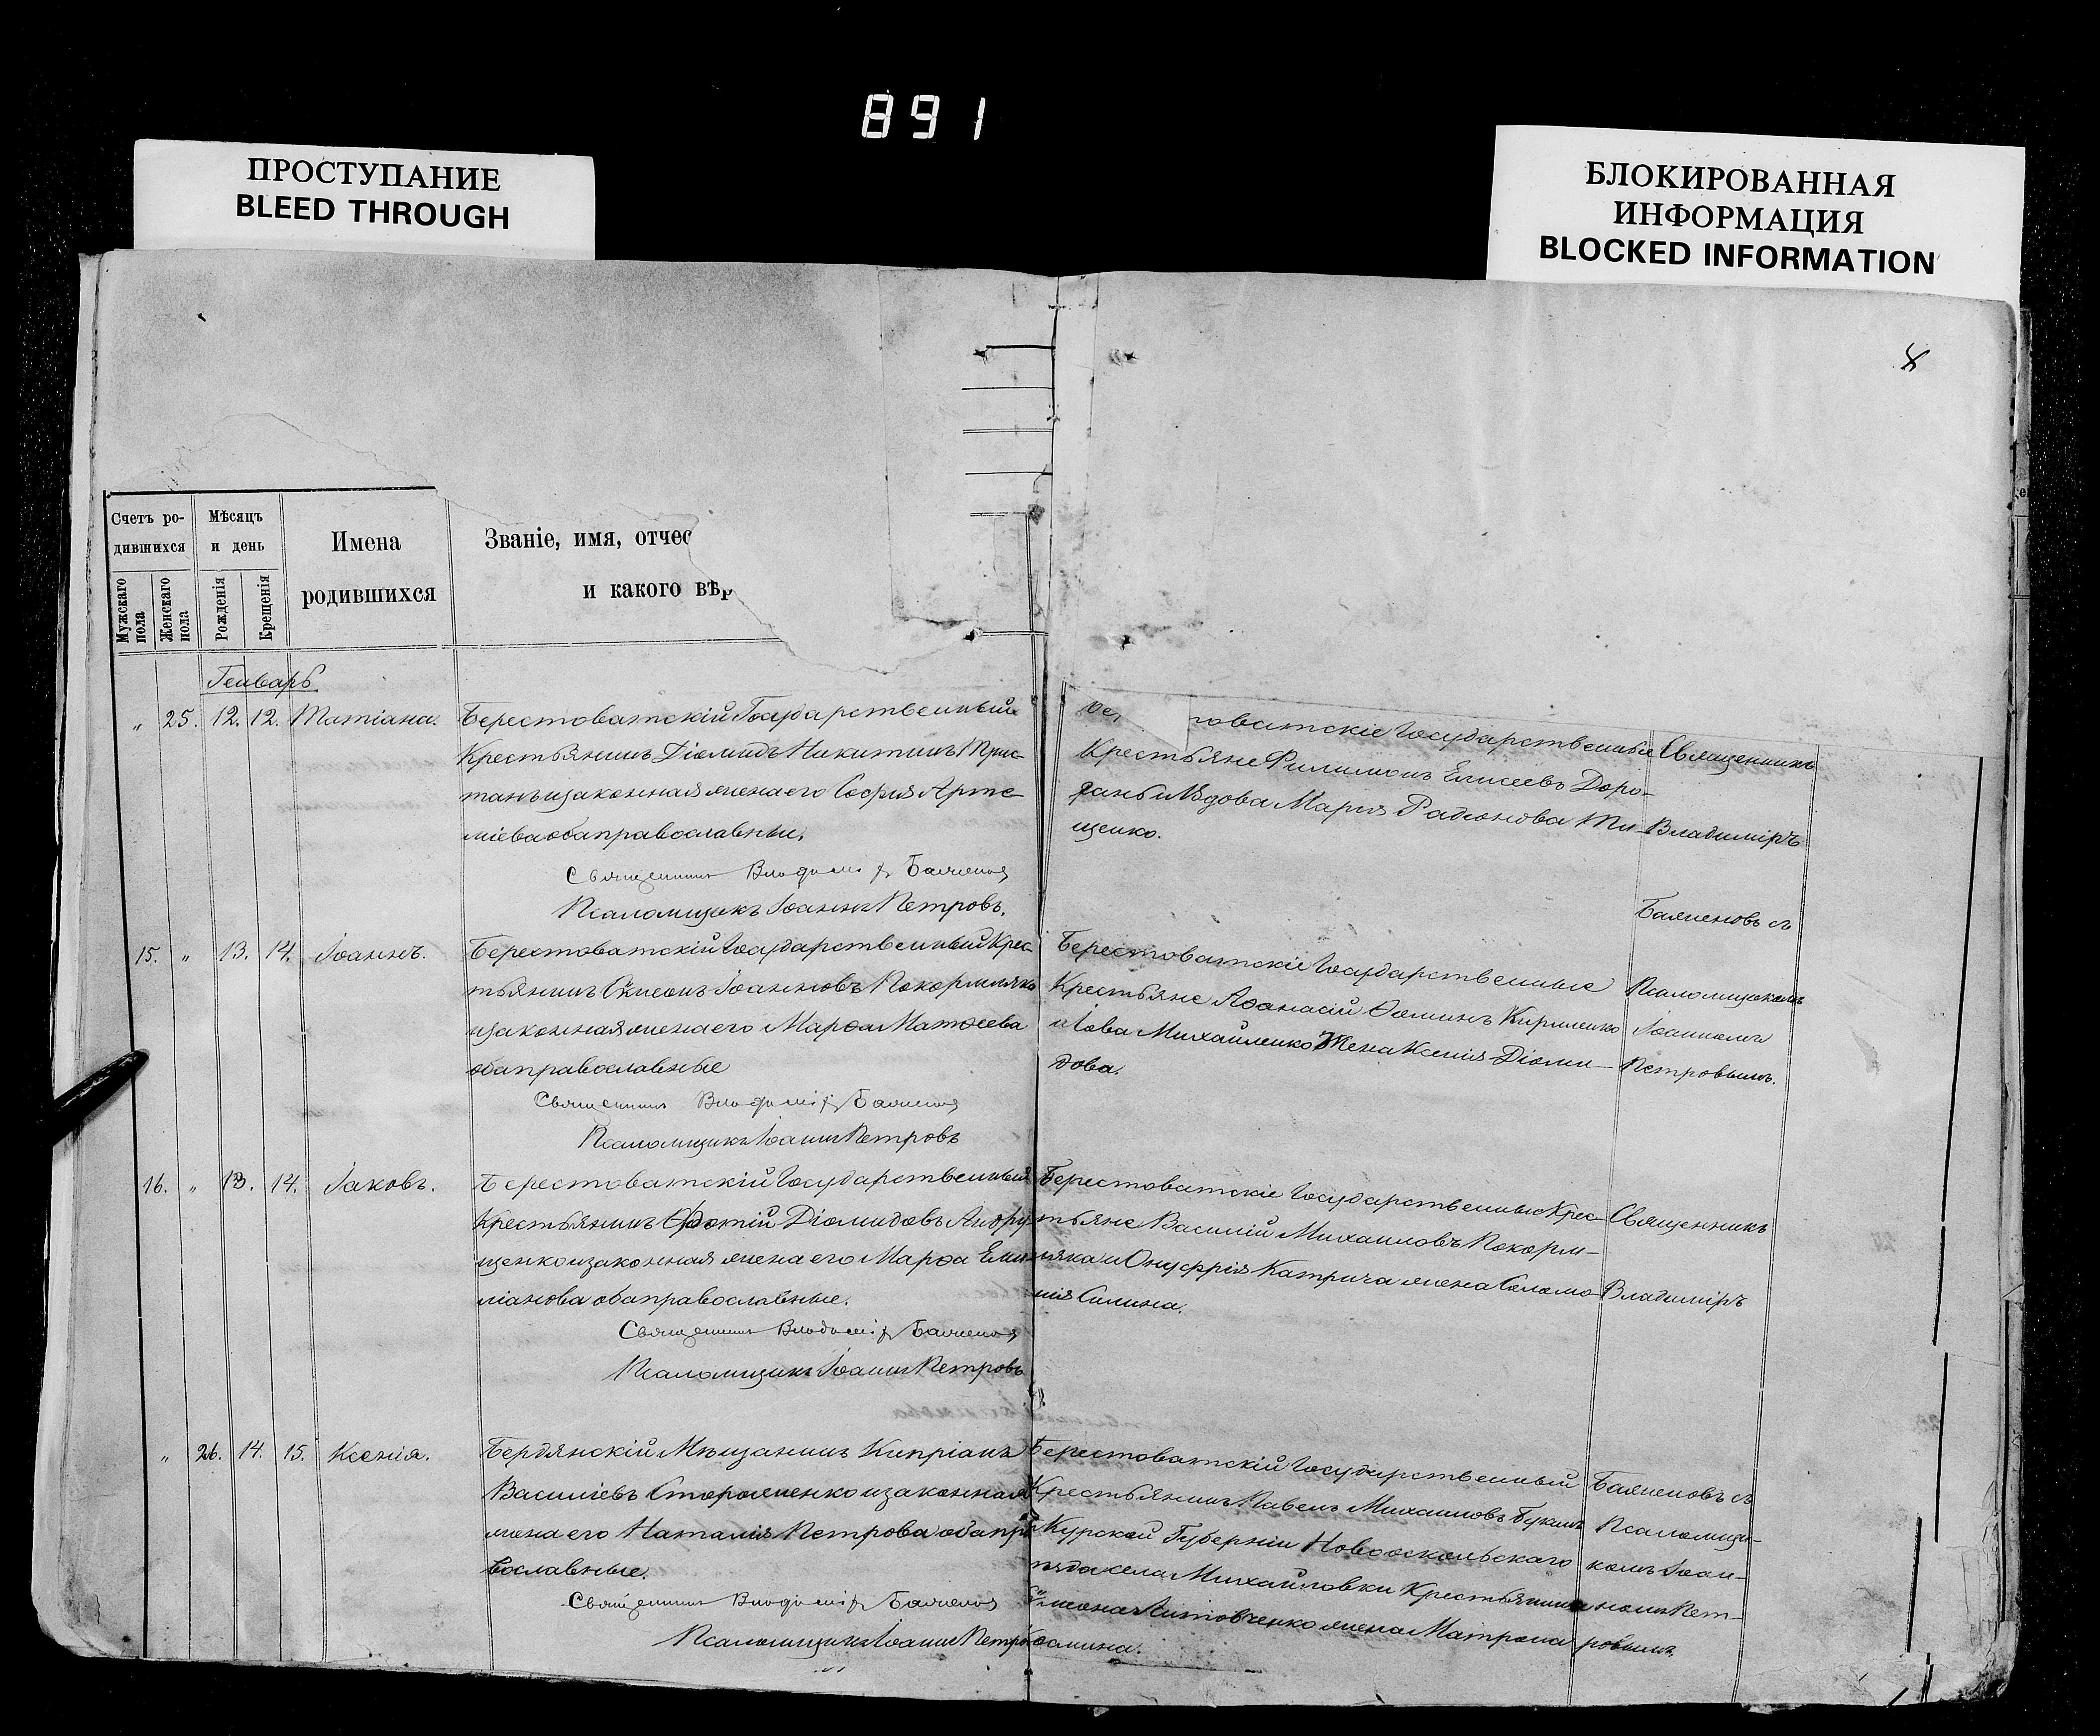 891
ПРОСТУПАНИЕ
BLEED THROUGH
БЛОКИРОВАННАЯ
ИНФОРМАЦИЯ
BLOCKED INFORMATION
8
Счетъ ро-
дившихся
Мужскаго пола
Женскаго пола
Мѣсяцъ
и день
Рожденія
Крещенія
Имена
родившихся
Званіе, имя, отчес
и какого вѣр
Генварь
„ 25. 12. 12. Татіана.
Берестоватскій Государственный
Крестьянинъ Діомидъ Никитинъ
законная жена его Софія Арте-
міева оба православные.
Священникъ Владимір Баженов
Псаломщикъ Іоаннъ Петровъ.
товатскіе Государственные
Крестьяне Филимонъ Елисеевъ Доро-
Вдова Марія Радіонова Ти-
щенко.
Священникъ
Владиміръ
Баженовъ съ
Псаломщикомъ
Іоанномъ
Петровымъ.
15. „ 13. 14. Іоаннъ.
Берестоватскій Государственный Крес-
тьянинъ Сѵмеонъ Іоанновъ Покормляко
и законная жена его Марѳа Матѳеева
оба православные
Священникъ Владимір Баженов
Псаломщикъ Іоаннъ Петровъ
Берестоватскіе Государственные
Крестьяне Аѳанасій Ѳоминъ Кириленко
и Іова Михайленко Жена Ксенія Діоми-
дова.
16. „ 13. 14. Іаковъ.
Берестоватскій Государственный
Крестьянинъ Фотій Діомидовъ Андру-
щенко и законная жена его Марѳа Еми
ліанова оба православные.
Священникъ Владимір Баженов
Псаломщикъ Іоаннъ Петровъ
Берестоватскіе Государственные Крес-
тьяне Василій Михаиловъ Покорм-
ляка и Онуфрія Катрича жена Соломо-
нія Силина.
Священникъ
Владиміръ
Баженовъ съ
Псаломщи-
комъ Іоан-
номъ Пет-
ровымъ.
„ 26. 14. 15. Ксенія.
Бердянскій Мѣщанинъ Кипріанъ
Василіевъ Стороженко и законная
жена его Наталія Петрова оба пра
вославные.
Священникъ Владимір Баженов
Псаломщикъ Іоаннъ Петров
Берестоватскій Государственный
Крестьянинъ Павелъ Михаиловъ
Курской Губерніи Новооскольскаго
села Михайловки Крестьянина
Сѵмеона Литовченко жена Матрона
Ѳомина.